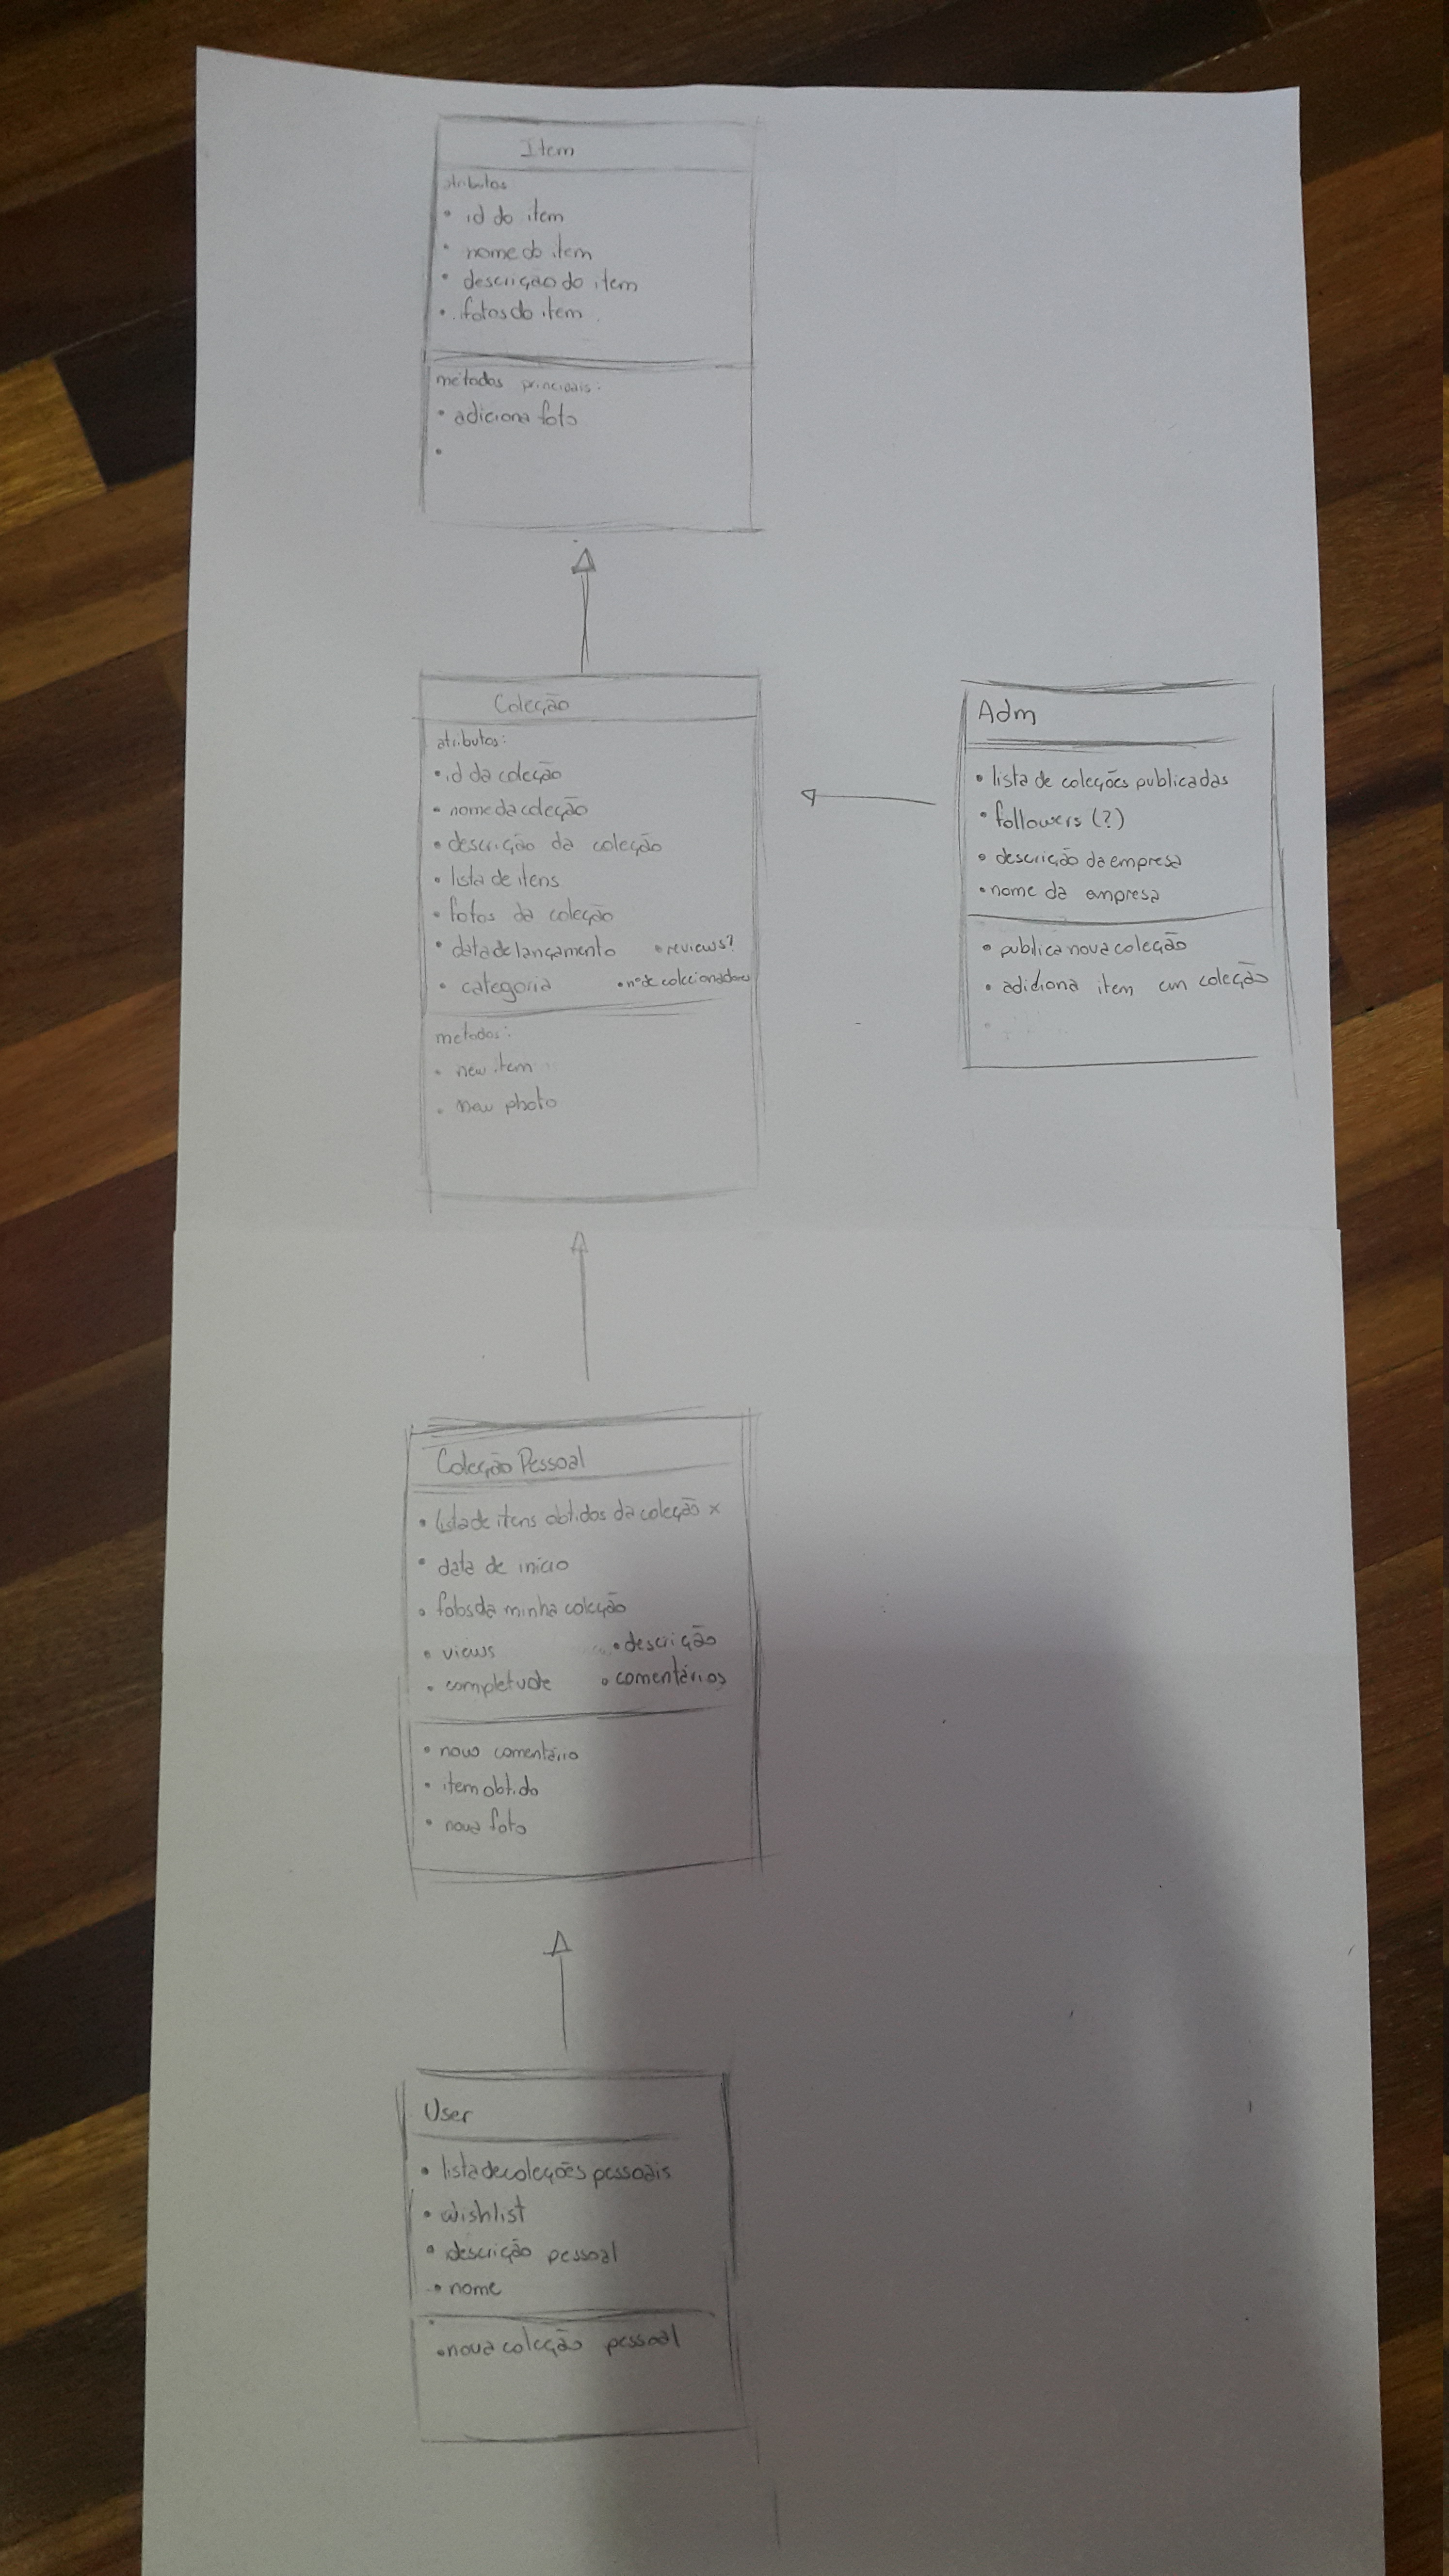 Item
atributos
• id do item
• nome do item
• descrição do item
• fotos do item
métodos principais:
• adiciona foto
•
Coleção
atributos:
• id da coleção
• nome da coleção
• descrição da coleção
• lista de itens
• fotos da coleção
• data de lançamento • reviews?
• categoria • nº de colecionadores
metodos:
• new item
• new photo
Adm
• lista de coleções publicadas
• followers (?)
• descrição da empresa
• nome da empresa
• publica nova coleção
• adiciona item em coleção
Coleção Pessoal
• lista de itens obtidos da coleção x
• data de início
• fotos da minha coleção
• views • descrição
• completude • comentários
• novo comentário
• item obtido
• nova foto
User
• lista de coleções pessoais
• wishlist
• descrição pessoal
• nome
• nova coleção pessoal